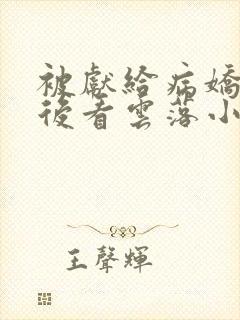 被獻給病嬌
後看雲落小
王聲輝